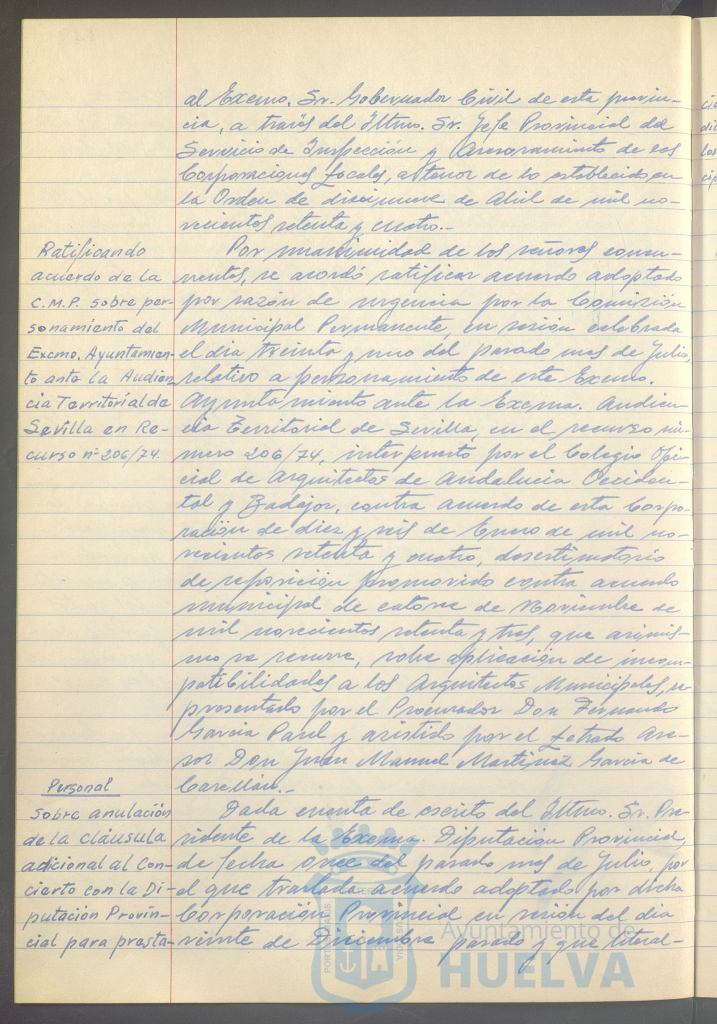 al Excmo. Sr. Gobernador Civil de esta provin-
cia, a través del Iltmo. Sr. Jefe Provincial del
Servicio de Inspección y Asesoramiento de las
Corporaciones Locales, al tenor de lo establecido en
la Orden de diecinueve de Abril de mil no-
vecientos setenta y cuatro.-
Ratificando
acuerdo de la
C.M.P. sobre per-
sonamiento del
Excmo. Ayuntamien-
to ante la Audien
cia Territorial de
Sevilla en Re-
curso nº 206/74.
Por unanimidad de los señores concu-
rrentes, se acordó ratificar acuerdo adoptado
por razón de urgencia por la Comisión
Municipal Permanente, en sesión celebrada
el día treinta y uno del pasado mes de Julio,
relativo a personamiento de este Excmo.
Ayuntamiento ante la Excma. Audien-
cia Territorial de Sevilla, en el recurso nú-
mero 206/74, interpuesto por el Colegio Ofi-
cial de Arquitectos de Andalucía Occiden-
tal y Badajoz, contra acuerdo de esta Corpo-
ración de diez y seis de Enero de mil no-
vecientos setenta y cuatro, desestimatorio
de reposición promovido contra acuerdo
municipal de catorce de Noviembre de
mil novecientos setenta y tres, que asimis-
mo se recurre, sobre aplicación de incom-
patibilidades a los Arquitectos Municipales, re
presentado por el Procurador Don Fernando
García Parul y asistido por el Letrado Ase-
sor Don Juan Manuel Martínez García de
Casellán.-
Personal
Sobre anulación
de la cláusula
adicional al Con-
cierto con la Di-
putación Provin-
cial para presta-
Dada cuenta de escrito del Iltmo. Sr. Pre-
sidente de la Excma. Diputación Provincial,
de fecha once del pasado mes de Julio, por
el que traslada acuerdo adoptado por dicha
Corporación Provincial en sesión del día
veinte de Diciembre pasado y que literal-
Ayuntamiento de
HUELVA